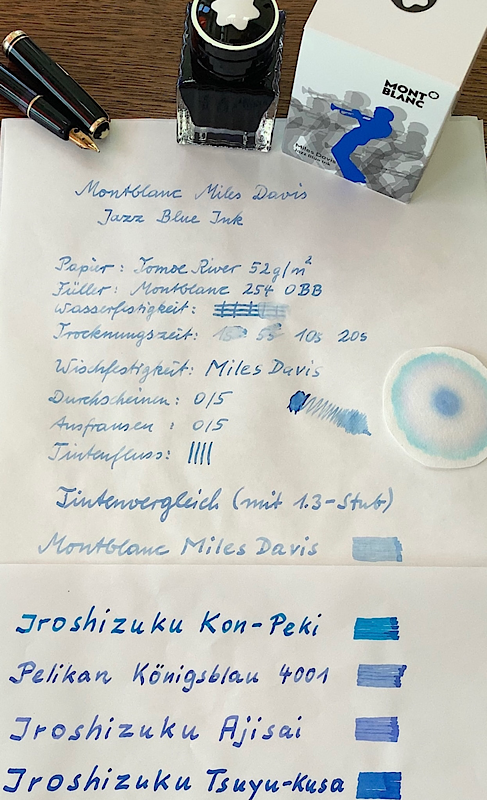 MONT
BLANC
Miles Davis
Jazz Blue Ink
Montblanc Miles Davis
Jazz Blue Ink
Papier: Tomoe River 52g/m²
Füller: Montblanc 254 OBB
Wasserfestigkeit:
Trocknungszeit: 1s 5s 10s 20s
Wischfestigkeit: Miles Davis
Durchscheinen: 0/5
Ausfransen: 0/5
Tintenfluss:
Tintenvergleich (mit 1.3-Stub)
Montblanc Miles Davis
Iroshizuku Kon-Peki
Pelikan Königsblau 4001
Iroshizuku Ajisai
Iroshizuku Tsuyu-Kusa